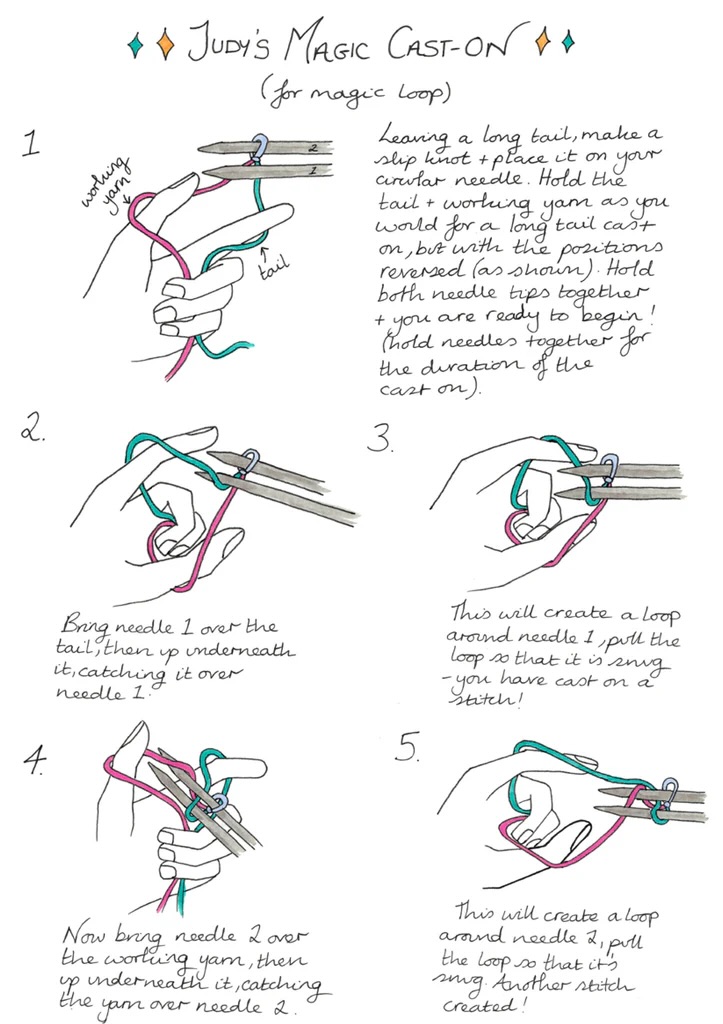 JUDY'S MAGIC CAST-ON
(for magic loop)
1
working
yarn
2
1
tail
Leaving a long tail, make a
slip knot + place it on your
circular needle. Hold the
tail + working yarn as you
would for a long tail cast
on, but with the positions
reversed (as shown). Hold
both needle tips together
+ you are ready to begin!
(hold needles together for
the duration of the
cast on).
2.
Bring needle 1 over the
tail, then up underneath
it, catching it over
needle 1.
3.
This will create a loop
around needle 1, pull the
loop so that it is snug
- you have cast on a
stitch!
4.
Now bring needle 2 over
the working yarn, then
up underneath it, catching
the yarn over needle 2.
5.
This will create a loop
around needle 2, pull
the loop so that it's
snug. Another stitch
created!